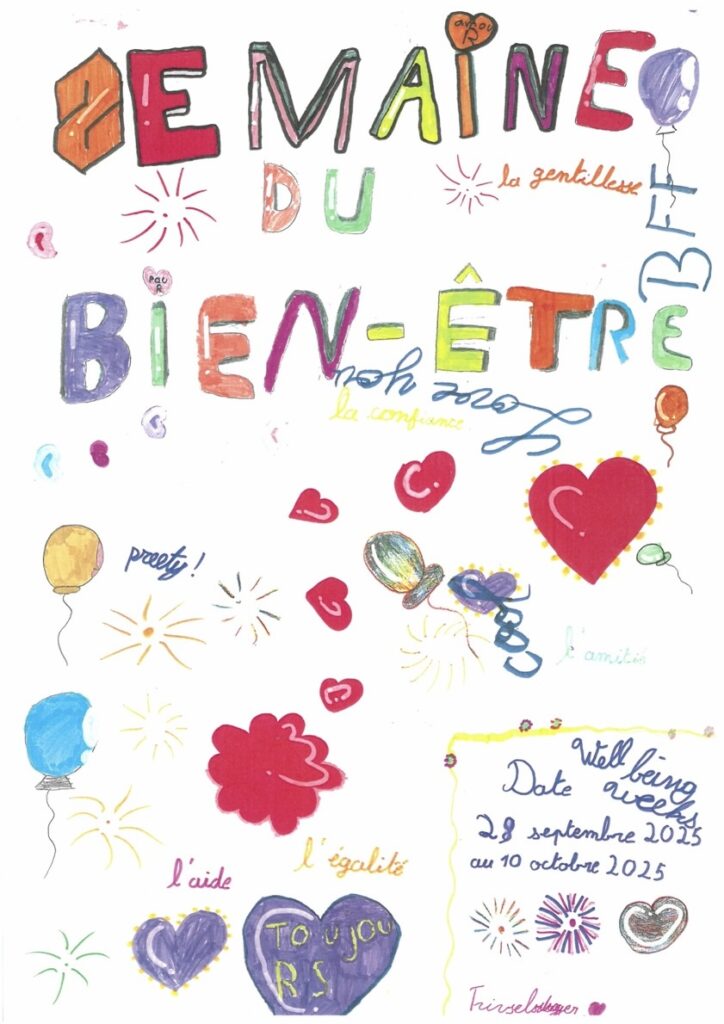 SEMAINE
amouR
DU
la gentillesse
BFF
BIEN-ÊTRE
pouR
Love you
la confiance
preety!
cool
l'amitiés
Well being
weeks
Date
28 septembre 2025
au 10 octobre 2025
l'aide
l'égalité
TOUJOU
RS